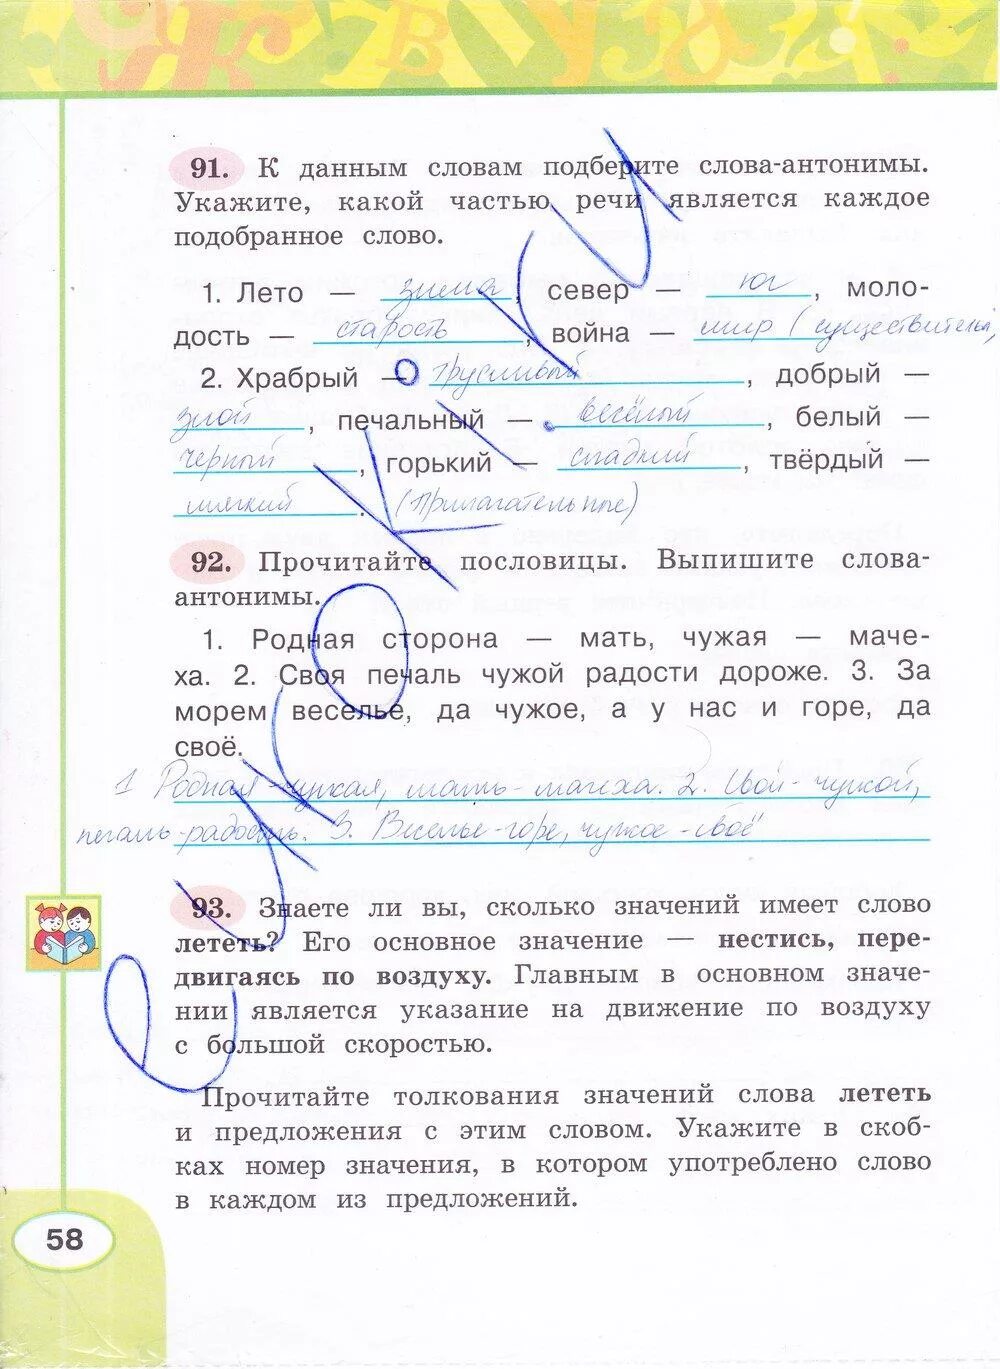 91. К данным словам подберите слова-антонимы.
Укажите, какой частью речи является каждое
подобранное слово.
1. Лето — зима, север — юг, моло-
дость — старость, война — мир (существительн
2. Храбрый — трусливый, добрый —
злой, печальный — весёлый, белый —
черный, горький — сладкий, твёрдый —
мягкий. (Прилагательные)
92. Прочитайте пословицы. Выпишите слова-
антонимы.
1. Родная сторона — мать, чужая — маче-
ха. 2. Своя печаль чужой радости дороже. 3. За
морем веселье, да чужое, а у нас и горе, да
своё.
1 Родная-чужая, мать-мачеха. 2. Свой-чужой,
печаль-радость. 3. Веселье-горе, чужое-своё
93. Знаете ли вы, сколько значений имеет слово
лететь? Его основное значение — нестись, пере-
двигаясь по воздуху. Главным в основном значе-
нии является указание на движение по воздуху
с большой скоростью.
Прочитайте толкования значений слова лететь
и предложения с этим словом. Укажите в скоб-
ках номер значения, в котором употреблено слово
в каждом из предложений.
58